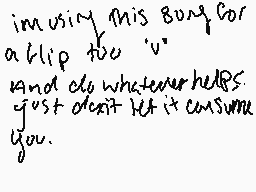 im using this song for
a flip too "v"
And do whatever helps.
just don't let it consume
you.